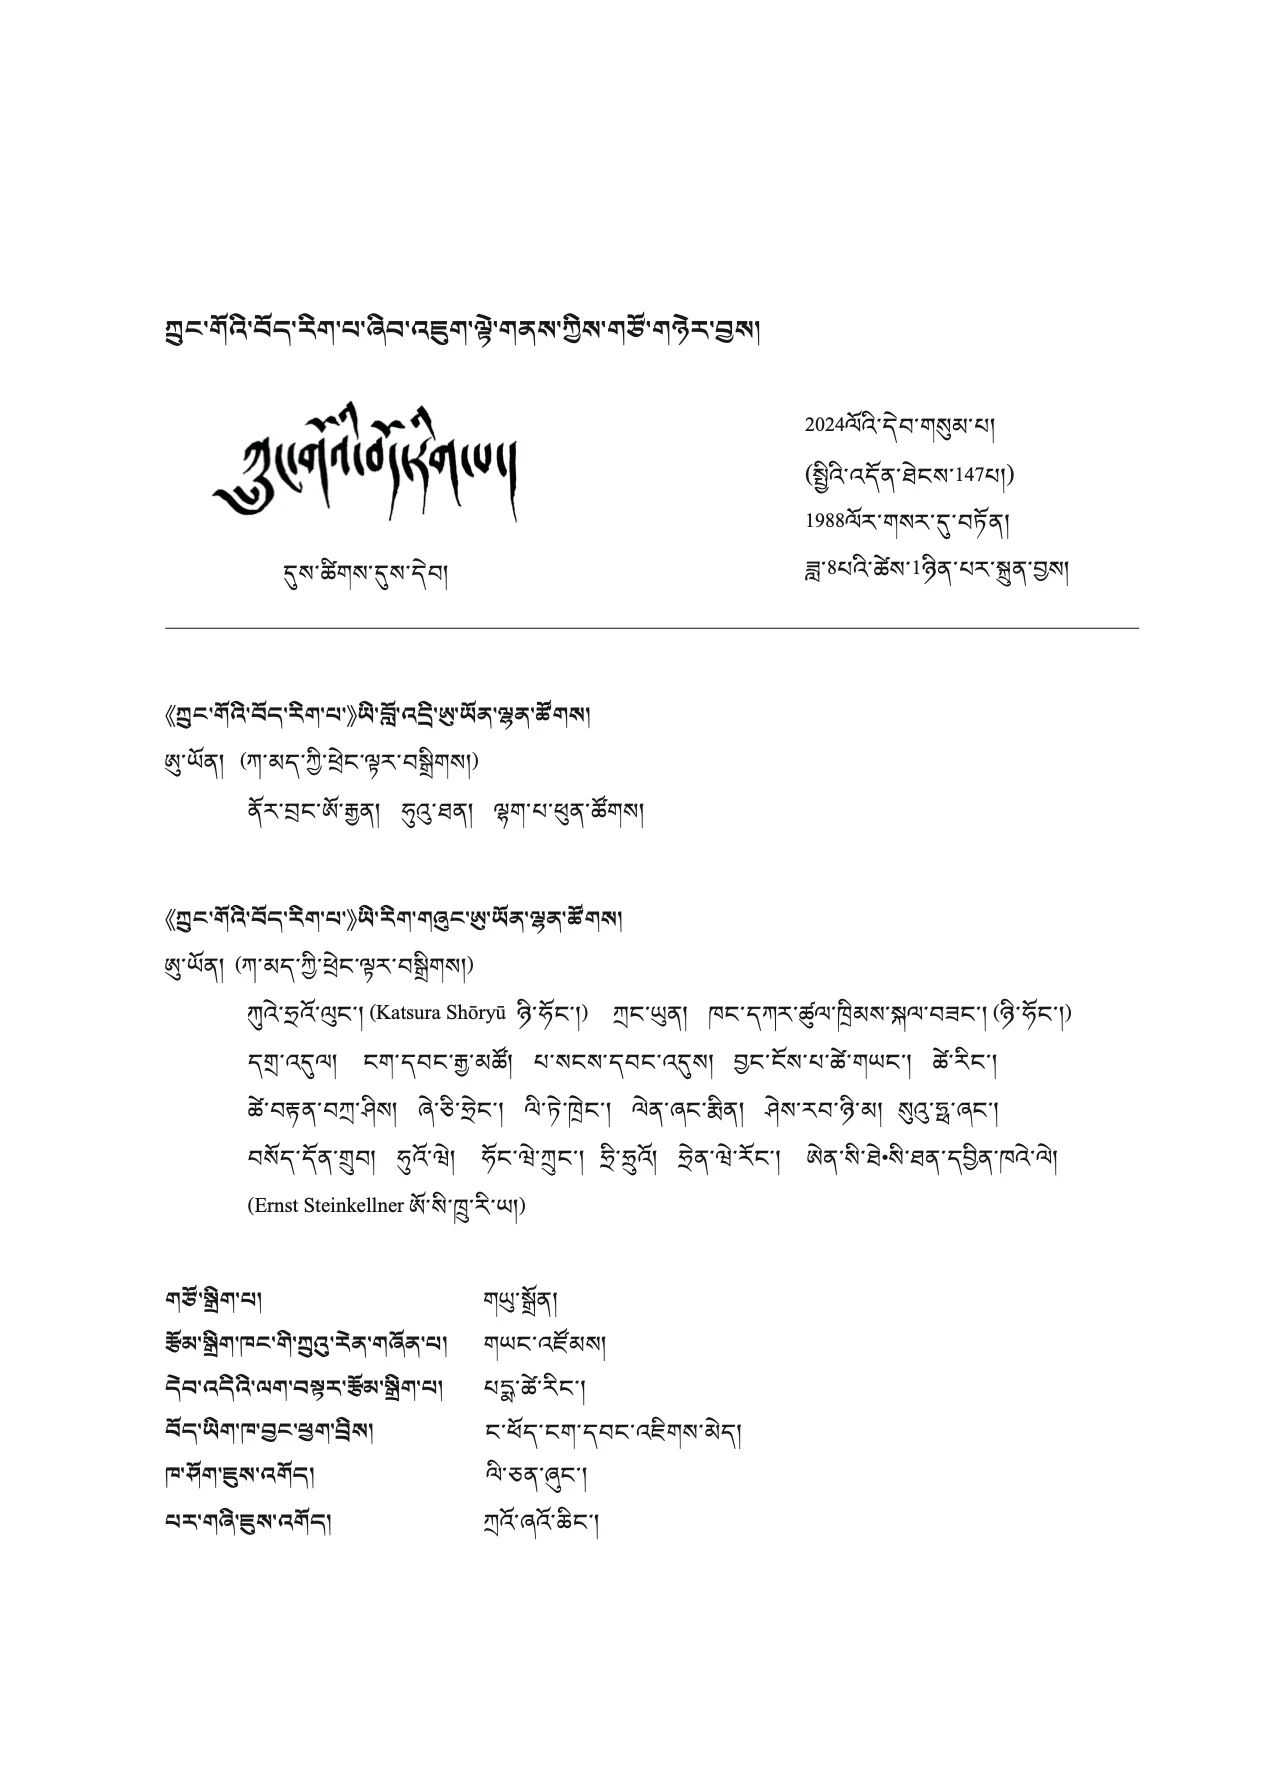 ཀྲུང་གོའི་བོད་རིག་པ་ཞིབ་འཇུག་ལྟེ་གནས་ཀྱིས་གཙོ་གཉེར་བྱས།
ཀྲུང་གོའི་བོད་རིག་པ།
དུས་ཚིགས་དུས་དེབ།
2024ལོའི་དེབ་གསུམ་པ།
(སྤྱིའི་འདོན་ཐེངས་147པ།)
1988ལོར་གསར་དུ་བཏོན།
ཟླ་8པའི་ཚེས་1ཉིན་པར་སྐྲུན་བྱས།
《ཀྲུང་གོའི་བོད་རིག་པ་》ཡི་བློ་འདྲི་ཨུ་ཡོན་ལྷན་ཚོགས།
ཨུ་ཡོན། (ཀ་མད་ཀྱི་ཕྲེང་ལྟར་བསྒྲིགས།)
ནོར་བྲང་ཨོ་རྒྱན། ཧུའུ་ཐན། ལྷག་པ་ཕུན་ཚོགས།
《ཀྲུང་གོའི་བོད་རིག་པ་》ཡི་རིག་གཞུང་ཨུ་ཡོན་ལྷན་ཚོགས།
ཨུ་ཡོན། (ཀ་མད་ཀྱི་ཕྲེང་ལྟར་བསྒྲིགས།)
ཀུའེ་ཧྲའོ་ལུང་། (Katsura Shōryū ཉི་ཧོང་།) ཀྲང་ཡུན། ཁང་དཀར་ཚུལ་ཁྲིམས་སྐལ་བཟང་། (ཉི་ཧོང་།)
དགྲ་འདུལ། ངག་དབང་རྒྱ་མཚོ། པ་སངས་དབང་འདུས། བྱང་ངོས་པ་ཚེ་གཡང་། ཚེ་རིང་།
ཚེ་བརྟན་བཀྲ་ཤིས། ཞེ་ཅི་ཧྲེང་། ལི་ཏེ་ཁྲེང་། ལེན་ཞང་རྨིན། ཤེས་རབ་ཉི་མ། སུའུ་ཧྥ་ཞང་།
བསོད་དོན་གྲུབ། ཧུའོ་ཝེ། ཧོང་ཝེ་ཀྲུང་། ཧྲི་ཧྲུའོ། ཧྲེན་ཝེ་རོང་། ཨེན་སི་ཐེ་སི་ཐན་དབྱིན་ཁའེ་ལེ།
(Ernst Steinkellner ཨོ་སི་ཁྲུ་རི་ཡ།)
གཙོ་སྒྲིག་པ། གཡུ་སྒྲོན།
རྩོམ་སྒྲིག་ཁང་གི་ཀྲུའུ་རེན་གཞོན་པ། གཡང་འཛོམས།
དེབ་འདིའི་ལག་བསྟར་རྩོམ་སྒྲིག་པ། པདྨ་ཚེ་རིང་།
བོད་ཡིག་ཁ་བྱང་ཕྱག་བྲིས། ང་ཕོད་ངག་དབང་འཇིགས་མེད།
ཁ་ཤོག་ཇུས་འགོད། ལི་ཅན་ཞུང་།
པར་གཞི་ཇུས་འགོད། ཀྲའོ་ཞའོ་ཆིང་།